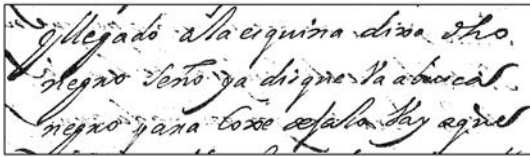 y llegado a la esquina dixo dho
negro Seño ya disque Va a buscar
negro para Coxe Va y aquel